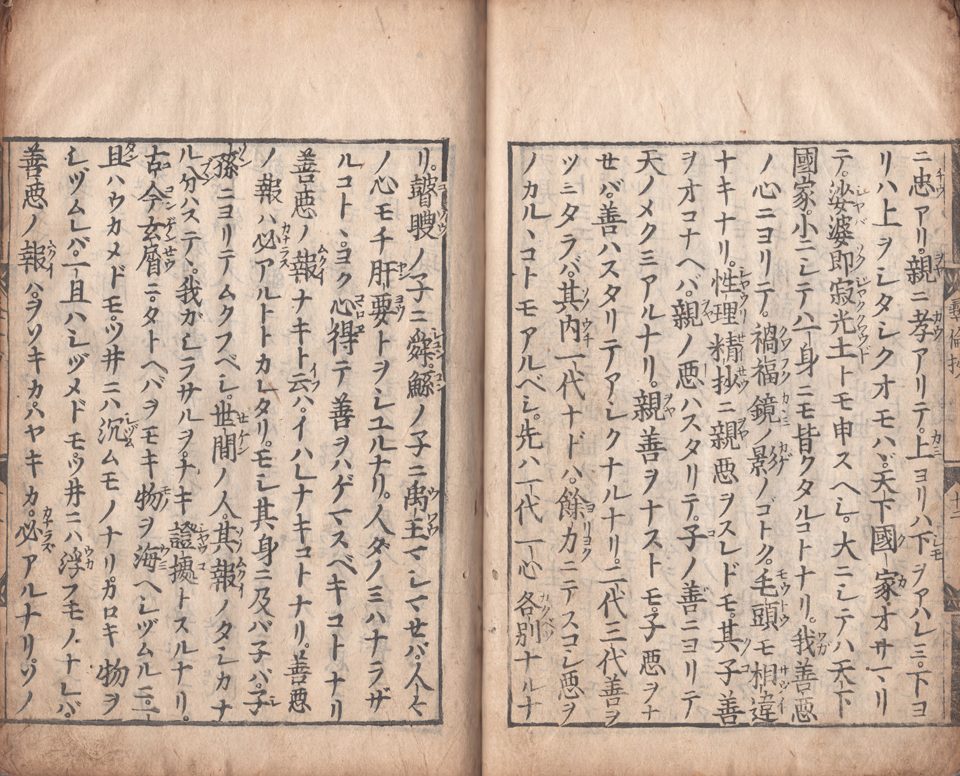 ニ忠アリ。親ニ孝アリテ。上ヨリハ下ヲアハレミ。下ヨ
リハ上ヲシタシクオモハヾ。天下國家オサマリ
テ。娑婆即寂光土トモ申スヘシ。大ニシテハ天下
國家。小ニシテハ一身ニモ皆クタルコトナリ。我善惡
ノ心ニヨリテ。禍福鏡ノ影ノゴトク。毛頭モ相違
ナキナリ。性理精抄ニ親惡ヲスレドモ。其子善
ヲオコナヘバ。親ノ惡ハスタリテ。子ノ善ニヨリテ
天ノメクミアルナリ。親善ヲナストモ。子惡ヲナ
せバ。善ハスタリテアシクナルナリ。二代三代善ヲ
ツミタラバ。其内一代ナドハ。餘カニテスコシ惡ヲ
ノカルヽコトモアルベシ。先ハ一代一心各別ナルナ
リ。瞽瞍ノ子ニ舜。鯀ノ子ニ禹王マシマせバ。人々
ノ心モチ肝要トヲシユルナリ。人タノミハナラザ
ルコトヽ。ヨク心得テ善ヲハゲマスベキコトナリ
善惡ノ報ナキト云ハ。イハレナキコトナリ。善惡
ノ報ハ必アルトトカレタリ。モシ其身ニ及バ子バ子
孫ニヨリテムクフベシ。世間ノ人。其報ノタシカナ
ル分ハステヽ。我カシラサルヲチキ證據トスルナリ。
古今玄層ニ。タトヘバヲモキ物ヲ海ヘシヅムルニ。一
且ハウカメドモ。ツ井ニハ沉ムモノナリ。カロキ物ヲ
シヅムレバ。一且ハシヅメドモ。ツ井ニハ浮フモノナレバ。
善惡ノ報ハ。ヲソキカ。ハヤキカ。必アルナリ。ソノ